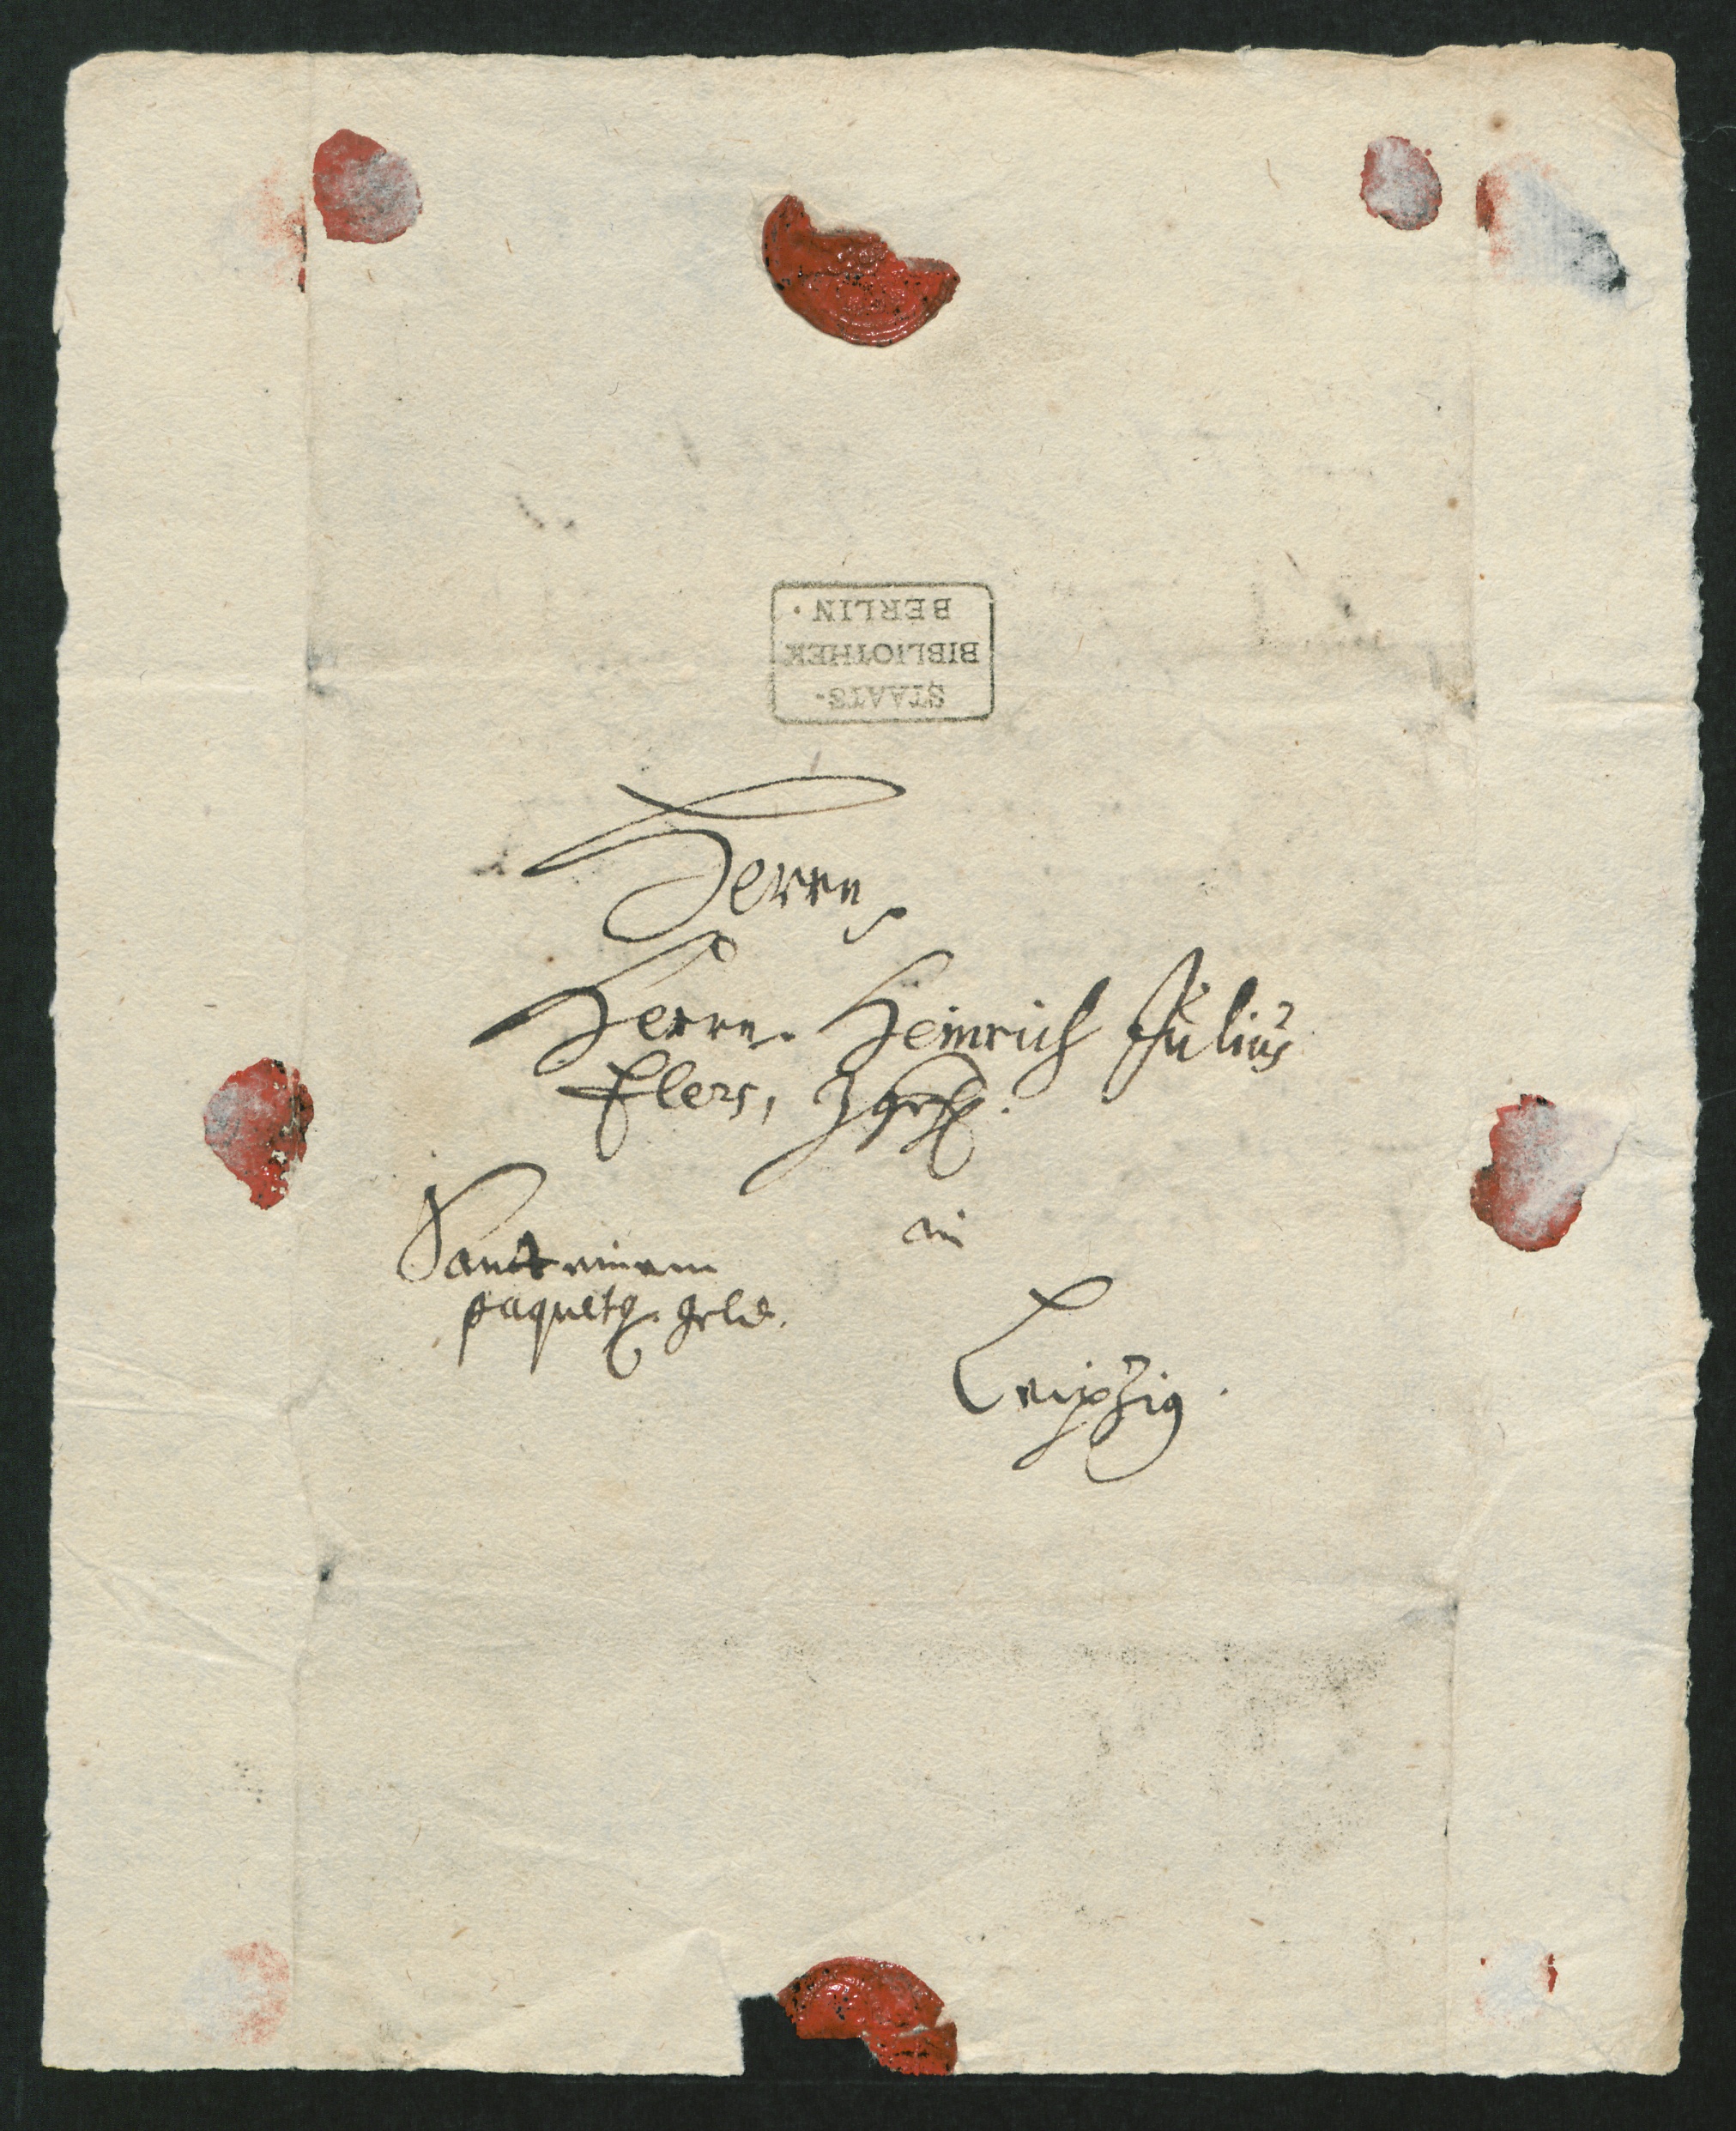 STAATS-
BIBLIOTHEK
BERLIN ·
Herrn,
Herrn. Heinrich Julius
Elers,
Sambt einem
paquetg. geld.
in
Leipzig.